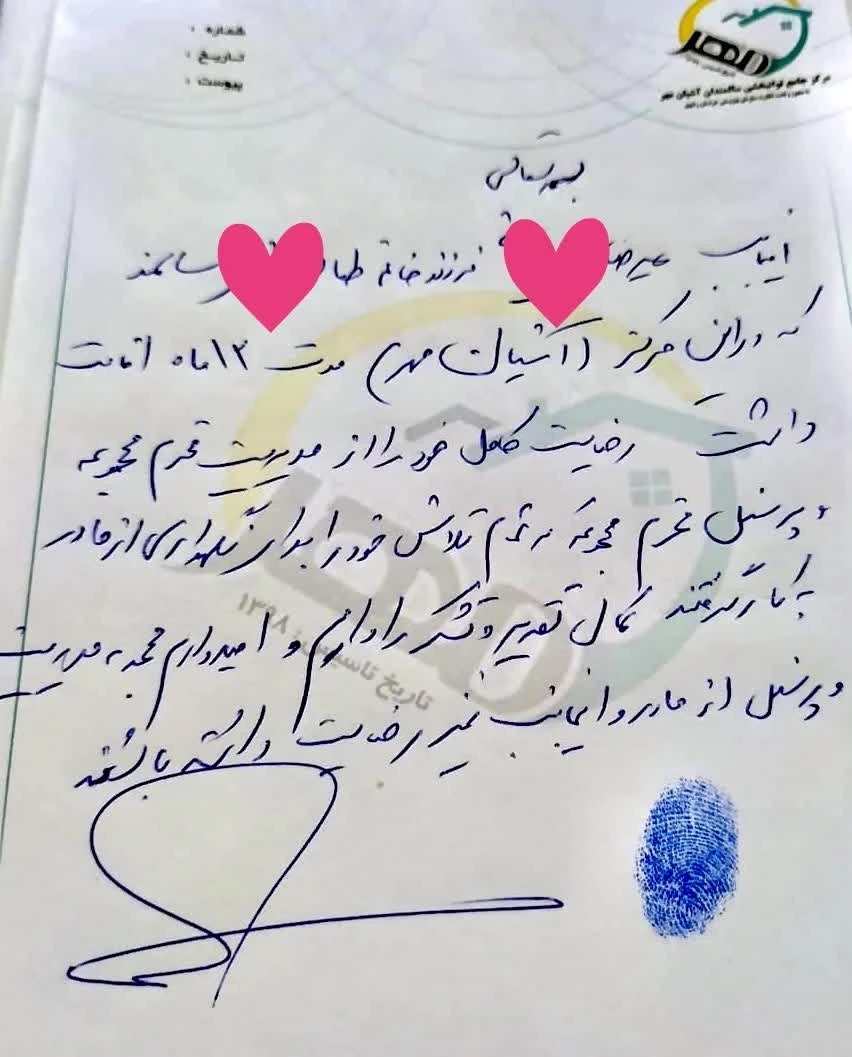 شماره :
تاریخ :
پیوست :
مهر
مرکز جامع توانبخشی سالمندان آشیان مهر
بسمه تعالی
اینجانب علیرضا فرزند خانم سالمند
که در این مرکز (آشیان مهر) مدت ۱۳ماه اقامت
داشت رضایت کامل خود را از مدیریت محترم مجموعه
و پرسنل محترم مجموعه که تمام تلاش خود را برای نگهداری از مادر
به کار گرفتند کمال تقدیر و تشکر را دارم و امیدوارم مجموعه مدیریت
و پرسنل از مادر و اینجانب نیز رضایت داشته باشند
مهر
تاریخ تاسیس: ۱۳۹۸